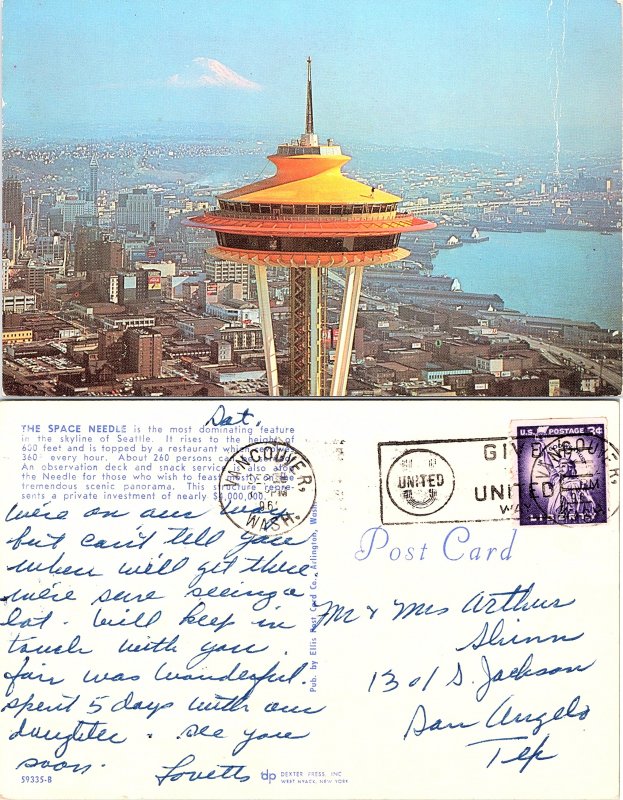 Sat.
THE SPACE NEEDLE is the most dominating feature
in the skyline of Seattle. It rises to the height of
600 feet and is topped by a restaurant which revolves
360° every hour. About 260 persons can
An observation deck and snack service also atop
the Needle for those who wish to feast on the
tremendous scenic panorama. The structure repre-
sents a private investment of nearly $4,000,000.
VANCOUVER,
WASH.
PM
GIVE
UNITED
UNITED
WAY
U.S. POSTAGE 3¢
LIBERTY
Post Card
We're on our way
but can't tell you
when we'll get there
we're sure seeing a
lot. Will keep in
touch with you.
fair was wonderful.
spent 5 days with our
daughter. see you
soon.
Lovetts
Pub. by Ellis Post Card Co., Arlington, Wash.
Mr & Mrs Arthur
Shinn
1301 S. Jackson
San Angelo
Tex
59335-B
dp DEXTER PRESS, INC.
WEST NYACK, NEW YORK